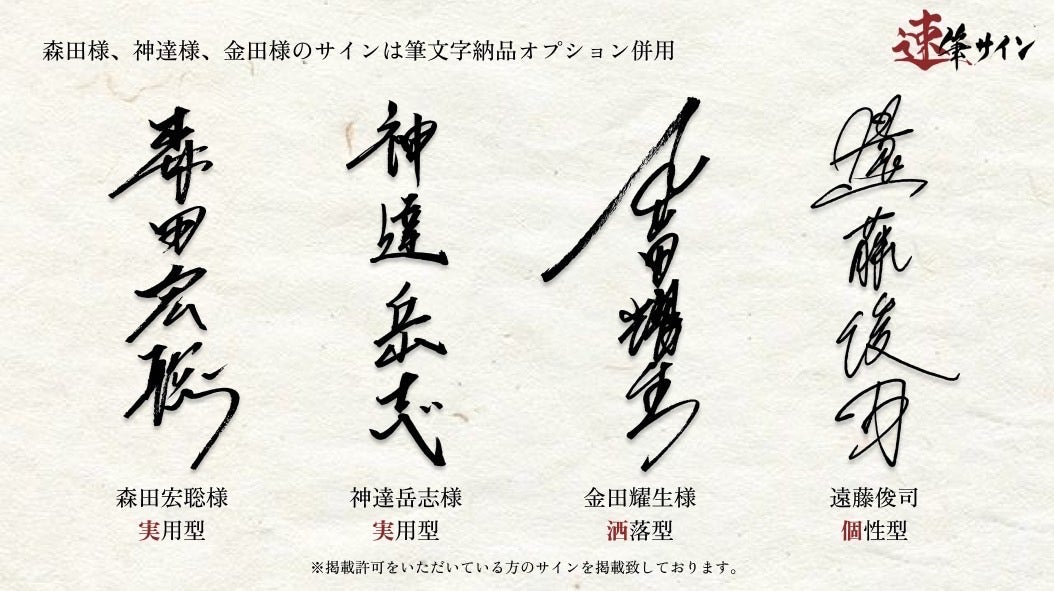 森田様、神達様、金田様のサインは筆文字納品オプション併用
速筆サイン
森田宏聡
神達岳志
金田耀生
遠藤俊司
森田宏聡様
実用型
神達岳志様
実用型
金田耀生様
洒落型
遠藤俊司
個性型
※掲載許可をいただいている方のサインを掲載致しております。